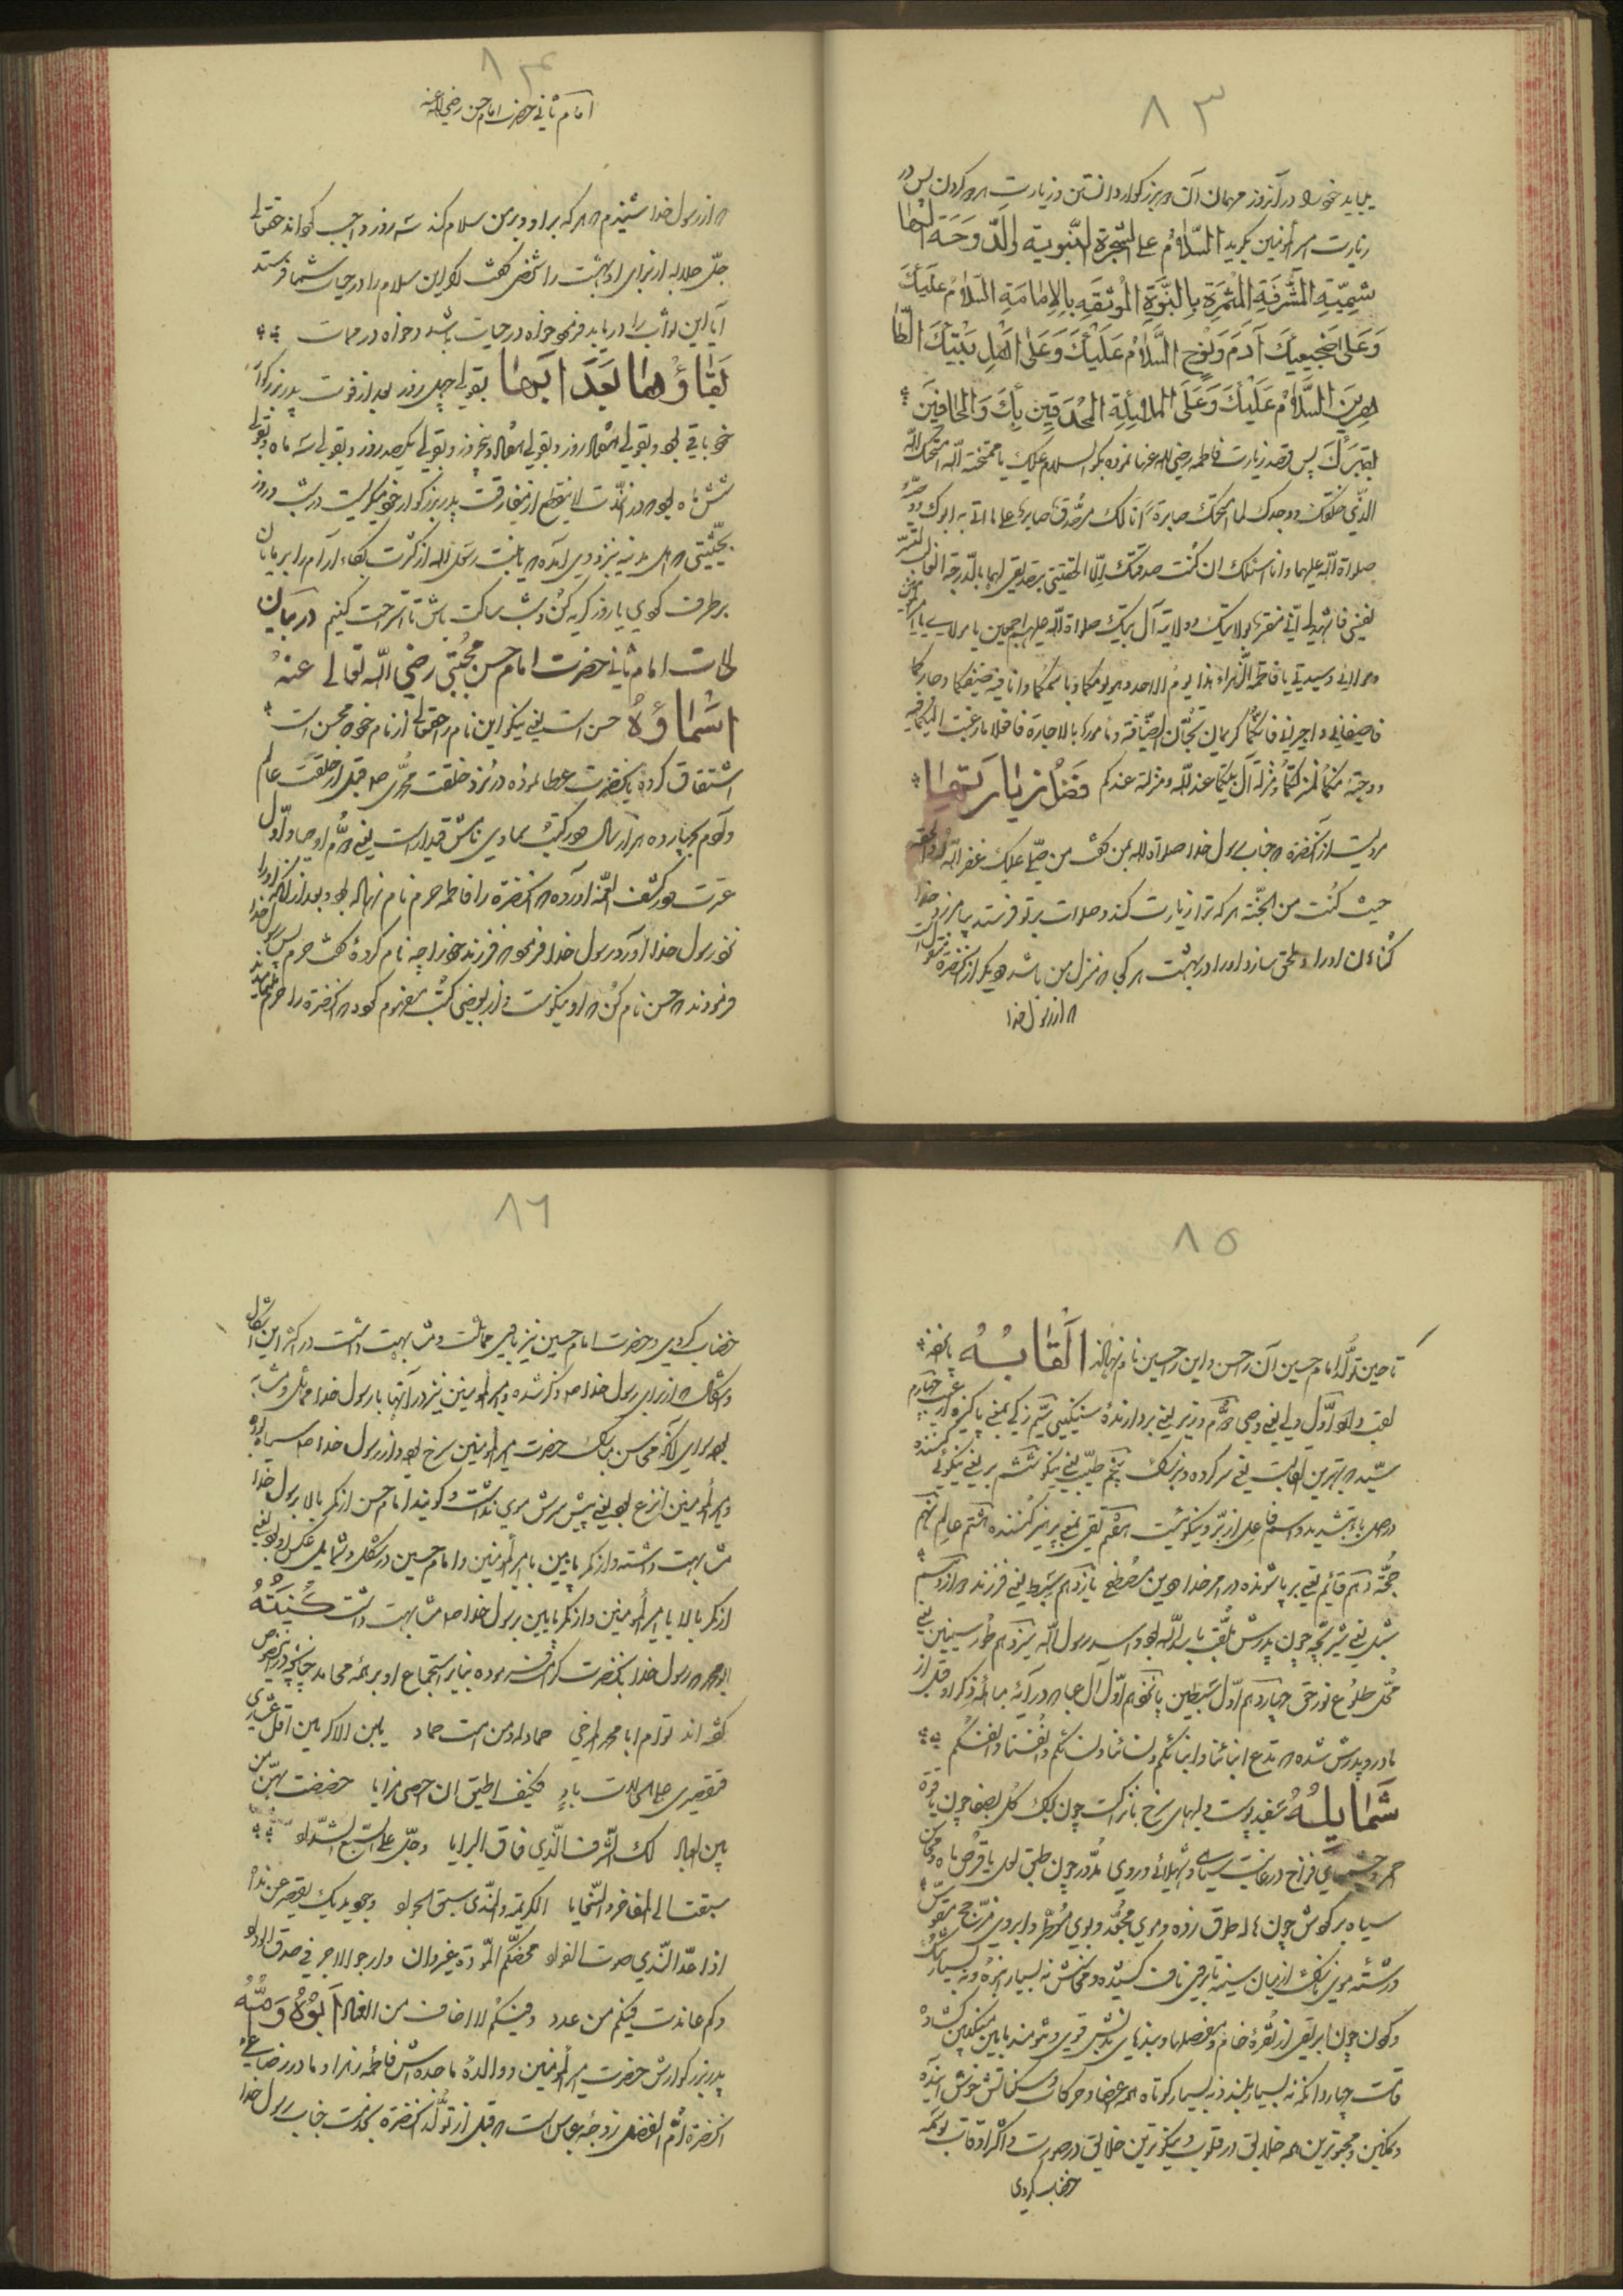 ٨٣
بباید خود را در آنروز مهمان آن بزرگوار دانستن و زیارت کردن پس در
زیارت امیرالمؤمنین بگوید السَّلامُ علی الشجرة النَّبَویة والدَّوحَة الهَا
شِمِیّةِ المُشْرِفَةِ المُثْمِرَةِ بِالنُّبَوَّةِ المُونِقَهِ بِالاِمامَةِ السَّلامُ عَلَیْكَ
وَعَلَی ضَجِیعَیْكَ آدَمَ وَنُوحٍ السَّلامُ عَلَیْكَ وَعَلَی اَهْلِ بَیْتِكَ الطَّا
هِرِینَ السَّلامُ عَلَیْكَ وَعَلَی المَلائِکَةِ المُحْدِقِینَ بِكَ وَالحَافِّینَ
بِقَبْرِكَ پس قصد زیارت فاطمه رضی الله عنها نموده بگو السلام علیك یا ممتحنة امتحنك الله
الذی خلقك فوجدك لما امتحنك صابرة انا لك مصدق صابر علی ما اتی به ابوك و وصیه
صلوات الله علیهما وانا اسئلك ان کنت صدقتك الا الحقتنی بتصدیقی لهما بالدرجة
نفسی فاشهدی انی مقر بولایتك وولایة آل بیتك صلوات الله علیهم اجمعین یا مولای یا امیرالمؤمنین
ومولاتی وسیدتی یا فاطمة الزهراء هذا یوم الاحد وهو یومکما وباسمکما وانا فیه ضیفکما وجارکما
فاضیفانی واجیرانی فانکما کریمان تحبان الضیافة ومامورا بالاجارة فافعلا ما رغبت الیکما فیه
ورجوته منکما بمنزلتکما ومنزلة آل بیتکما عند الله ومنزلته عندکم فَضْلُ زِیارَتِهَا
مرویست از آنحضرة جناب رسول خدا صلواة الله بمن گفت من صلی علیك غفر الله له والحقه
حیث کنت من الجنة هر که ترا زیارت کند وصلوات بر تو فرستد بیامرزد خدا
گناهان او را وملحق سازد او را در بهشت هر کجا منزل من باشد و دیگر از آنحضرة منقول است
از رسول خدا
٨٤
امام ثانی حضرت امام حسن رضی الله عنه
از رسول خدا شنیدم هر که بر او و بر من سلام کند سه روز واجب گرداند حقتعالی
جل جلاله از برای او بهشت را شخصی گفت این سلام را در حیات شما فرستد
آیا این ثواب را دریابد فرمود خواه در حیات باشد و خواه در ممات
بَقَاؤُهَا بَعْدَ اَبِیْهَا بقولی چهل روز بعد از فوت پدر بزرگوار
خود باقی بود وبقولی هفتاد روز وبقولی هفتاد و پنج روز وبقولی یکصد روز وبقولی سه ماه وبقولی
شش ماه بود و در آنمدت لاینقطع از مفارقت پدر بزرگوار خود میگریست در شب و روز
بحیثیتی اهل مدینه نزد وی آمدند یا بنت رسول الله از کثرت بکاء آرام را بر مایان
برطرف کردی یا روز گریه کن و شب ساکت باش تا استراحت کنیم در بیان
حالات امام ثانی حضرت امام حسن مجتبی رضی الله تعالی عنه
اَسْمَاؤُهُ حسن است یعنی نیکو این نام را حقتعالی از نام خود محسن است
اشتقاق کرده بآنحضرت عطا نموده در نزد خلقت محمدی ص قبل از خلقت عالم
و آدم بچهارده هزار سال و در کتب سماوی نامش قیدار است یعنی دوم اوصیا و اول
عترت و در کشف الغمة آورده آنحضرة را فاطمه حرم نام نهاده بود و بعد از آنکه او را
نزد رسول خدا آورد رسول خدا فرمود فرزند خود را چه نام کردۀ گفت حرم پس رسول خدا
فرمودند حسن نام کن او نیکوست و از بعضی کتب مفهوم که آنحضرة را حرم
٨٥
تا حین تولد امام حسین آن را حسن و این را حسین نام نهاد اَلْقَابُهُ پانزده
لقب دارد اول ولی یعنی وصی دوم وزیر یعنی بردارندۀ سنگینی سیم زکی بمعنی پاکیزه از عیب چهارم
سید بهترین القابست یعنی سرکرده و بزرگ پنجم طیب یعنی نیکو ششم بر یعنی نیکوئی کننده
در اصل باء بتشدید و اسم فاعل از بر و نیکوئیست هفتم تقی یعنی پرهیز کننده هشتم عالم نهم
حجة دهم قائم یعنی برپا شونده در امر خدا و دین مصطفی یازدهم سبط یعنی فرزند دوازدهم
شبل یعنی شیر بچه چون پدرش ملقب باسد الله بود و اسد رسول الله سیزدهم طور سینین یعنی
محل طلوع نور حق چهاردهم اول سبطین پانزدهم اول آل عبا در آیه مباهله ذکر او قبل از
مادر و پدرش شده ندع ابنائنا وابنائکم ونسائنا ونسائکم وانفسنا وانفسکم
شَمَایِلُهُ سفید پوست و لبهای سرخ نازک چون برگ گل بصفا چون یاقوت
احمر و چشمهای فراخ در غایت سیاهی و شهلائی و روی مدور چون طبق لعل یا قرص ماه و محاسن
سیاه بر گوش چون هاله طوق زده و موی مجعد و بوی معطر و ابروی مزجج مقوس
و رشتۀ موی نازک از میان سینه تا برقی ناف کشیده و محاسنش نه بسیار انبوه و نه بسیار تنک
و گردن چون ابریقی از نقرۀ خام و مفصلها و بندهای بدنش قوی و تنومند مابین منکبین گشاده
قامت چهاردانگ نه بسیار بلند و نه بسیار کوتاه همه اعضا و حرکات و سکناتش خوش آینده
و نمکین و محبوبترین همه خلایق در قلوب و نیکوترین خلایق در صورت و اکثر اوقات بوسمه
خضاب کردی
٨٦
خضاب کردی و حضرت امام حسین نیز باوی مماثلت و مشابهت داشت در اکثر این اشکال
و شمائل از برای رسول خدا ص ذکر شده و امیرالمؤمنین نیز در آنها با رسول خدا مماثل و مشابه
بود سوای آنکه محاسن مبارک حضرت امیرالمؤمنین سرخ بود و از رسول خدا ص سیاه بود
و امیرالمؤمنین انزع بود یعنی پیش سرش موی نداشت و گویند امام حسن از کمر بالا برسول خدا
مشابهت داشته و از کمر پایین بامیرالمؤمنین و امام حسین در شکل و شمایل عکس او بود یعنی
از کمر بالا با امیرالمؤمنین و از کمر پایین برسول خدا ص مشابهت داشت کُنْیَتُهُ
ابو محمد رسول خدا بآنحضرت کرامت فرموده بنابر استجماع او بر همه محامد چنانچه
گفته اند تو ام ابا محمد المرجی حماد له ومن امست حماد
فتقصیری علی الحالات باد فکیف اطیق ان احصی مزایا خصصت بهن من
بین العباد لك الشرف الذی فاق البرایا وجل علی السبع الشداد
سبقت الی المفاخر والسجایا الکریمة والندی سبق الجواد وجود یدیك یقصر عن مداه
اذا عد الندی صوت الغواد محضتکم المودة غیر وان وارجو الاجر فی صدق الوداد
وکم عاندت فیکم من عدو وفیکم لا اخاف من العناد اَبُوْهُ وَاُمُّهُ
پدر بزرگوارش حضرت امیرالمؤمنین و والدۀ ماجده اش فاطمۀ زهرا و مادر رضاعی
آنحضرة ام الفضل زوجۀ عباس است قبل از تولد آنحضرة بخدمت جناب رسول خدا